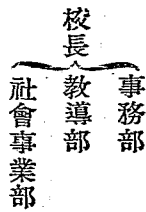 校長
事務部
教導部
社會事業部